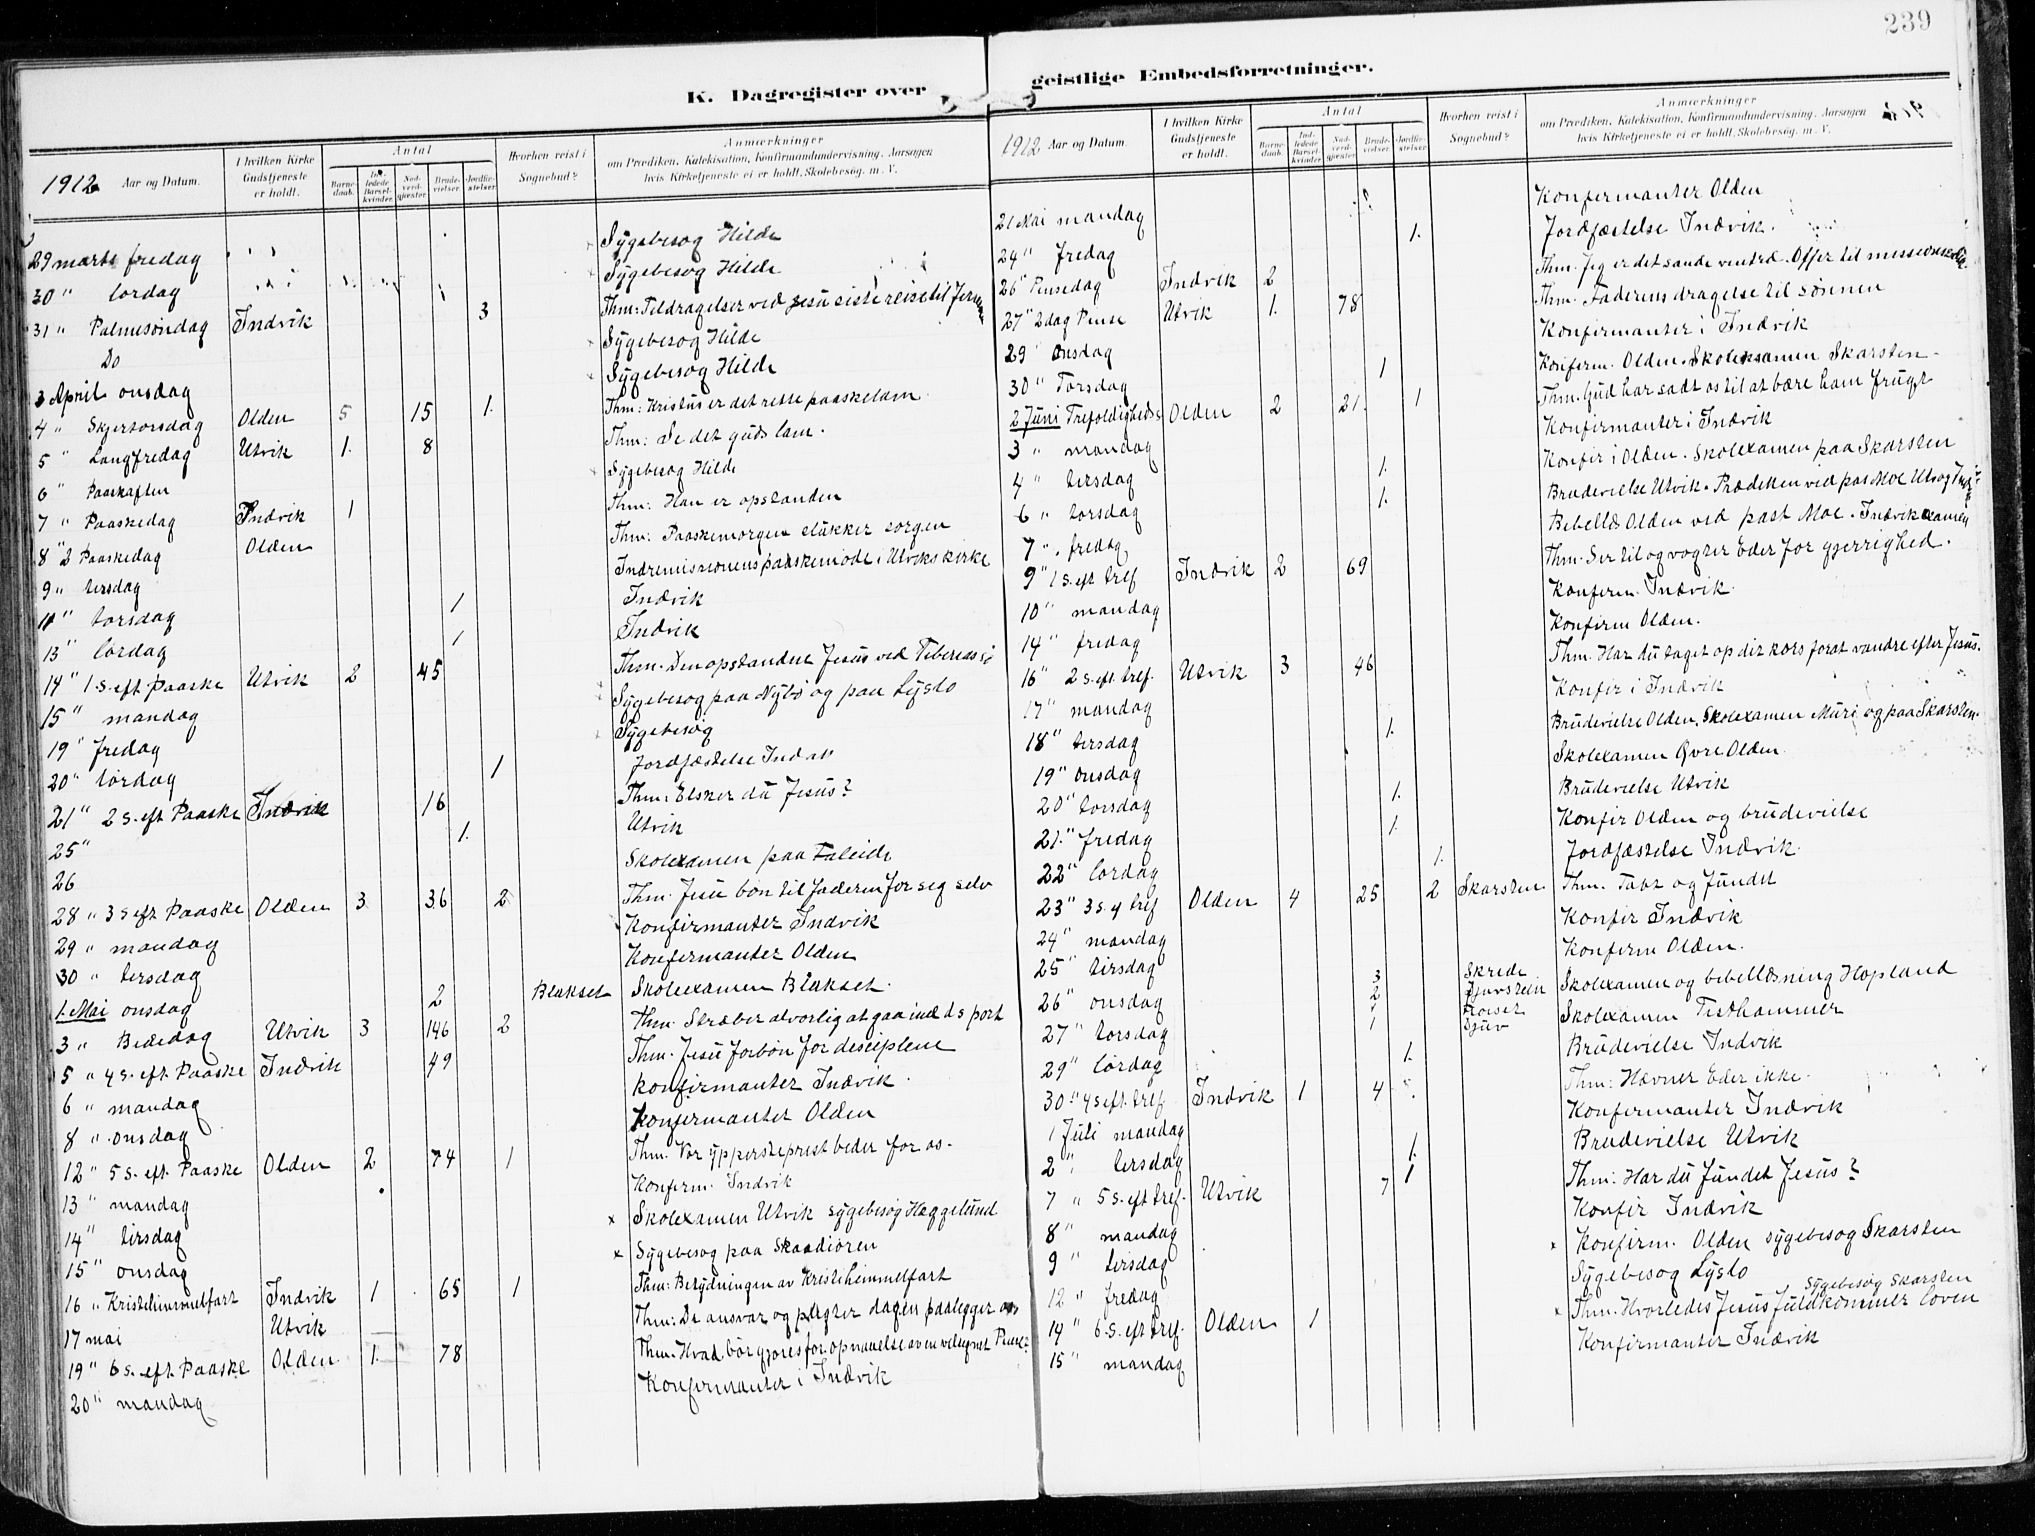 239
K. Dagregister over geistlige Embedsforretninger.
1912 Aar og Datum. I hvilken Kirke Gudstjeneste er holdt. Antal Barnedaab. Indledede Barselkvinder. Nadverdgjester. Brudevielser. Jordfæstelser. Hvorhen reist i Sognebud? Anmærkninger om Prædiken, Katekisation, Konfirmandundervisning, Aarsagen hvis Kirketjeneste ei er holdt, Skolebesøg, m. V.
29 marts fredag Sygebesøg Hilde
30 " lørdag Sygebesøg Hilde
31 " Palmesøndag Indvik 3 Thm: Tildragelser ved Jesu siste reise til
Do Sygebesøg Hilde
3 April onsdag Sygebesøg Hilde
4 " Skjertorsdag Olden 5 15 1. Thm: Kristus er det rette paaskelam.
5 " Langfredag Utvik 1. 8 Thm: Se det guds lam.
6 " Paaskaften Sygebesøg Hilde
7 " Paaskedag Indvik 1 Thm: Han er opstanden
8 " 2 Paaskedag Olden Thm: Paaskemorgen slukker sorgen
9 " tirsdag Indremissionens paaskemøde i Utviks kirke
11 " torsdag 1 Indvik
13 " lørdag 1 Indvik
14 " 1 s. eft Paaske Utvik 2 45 Thm. Den opstandne Jesus ved Tiberias sj
15 " mandag Sygebesøg paa Nybø og paa Lyslo
19 " fredag Sygebesøg
20 " lørdag 1 Jordfæstelse
21 " 2 s. eft Paaske Indvik 16 Thm: Elsker du Jesus?
25 " 1. Utvik
26 Skolexamen paa Faleide
28 " 3 s eft Paaske Olden 3 36 2 Thm. Jesu bøn til faderen for seg selv
29 " mandag Konfirmanter Indvik
30 " tirsdag Konfirmanter Olden
1. Mai onsdag 2 Blakset Skolexamen Blakset.
3 " Bededag Utvik 3 146 2 Thm. Stræber alvorlig at gaa ind d s port
5 " 4 s. eft. Paaske Indvik 49 Thm. Jesu forbøn for disciplene
6 " mandag konfirmanter Indvik.
8 " onsdag Konfirmanter Olden
12 " 5 s. eft. Paaske Olden 2 74 1 Thm. Vor ypperstepræst beder for os.
13 " mandag Konfirm. Indvik
14 " tirsdag Skolexamen Utvik sygebesøg Heggelund
15 " onsdag Sygebesøg paa
16 " Kristihimmelfart Indvik 1 65 1 Thm: Betydningen av Kristi himmelfart
17 mai Utvik Thm: De ansvar og pligter dagen paalegger os
19 " 6 s. eft. Paaske Olden 1. 78 Thm. Hvad bør gjøres for opnaaelse av en velsignet Pinse?
20 " mandag Konfirmanter i Indvik
1912 Aar og Datum. I hvilken Kirke Gudstjeneste er holdt. Antal Barnedaab. Indledede Barselkvinder. Nadverdgjester. Brudevielser. Jordfæstelser. Hvorhen reist i Sognebud? Anmærkninger om Prædiken, Katekisation, Konfirmandundervisning, Aarsagen hvis Kirketjeneste ei er holdt, Skolebesøg, m. V.
21 Mai mandag Konfirmanter Olden
24 " fredag 1. Jordfæstelse Indvik.
26 " Pinsedag Indvik 2 Thm. Jeg er det sande vintræ. Offer til
27 " 2dag Pinse Utvik 1. 78 Thm. Faderens dragelse til sønnen
29 " onsdag Konfirmanter i Indvik
30 " Torsdag 1 Konfirm. Olden. Skolexamen Skarsten.
2 Juni Trefoldigheds s Olden 2 21. 1 Thm. Gud har sadt os til at bære ham frugt
3 " mandag Konfirmanter i Indvik
4 " tirsdag 1. Konfir i Olden. Skolexamen paa Skarsten
6 " torsdag 1. Brudevielse Utvik. Prædiken ved pas Moe
7 " fredag Bibellæs Olden ved past Moe. Indvik examen
9 " 1 s. eft tref Indvik 2 69 Thm: Ser til og vogter Eder for gjerrighed.
10 " mandag Konfirm. Indvik.
14 " fredag Konfirm Olden.
16 " 2 s. eft. tref. Utvik 3 46 Thm. Har du taget op dit kors forat vandre efter Jesus.
17 " mandag Konfir i Indvik
18 " tirsdag 1. Brudevielse Olden. Skolexamen Muri og paa Skarsten.
19 " onsdag Skolexamen Øvre Olden
20 " torsdag 1. Brudevielse Utvik
21. " fredag 1. Konfir Olden og brudevielse
22 " lørdag 1. Jordfæstelse Indvik.
23 " 3 s. y tref Olden 4 25 2 Skarsten Thm. Tabt og fundet
24 " mandag Konfir Indvik
25 " tirsdag Konfirm Olden.
26 " onsdag 3 2 Skrede Skolexamen og bibellæsning Hopland
27 " torsdag 1 Skolexamen Tisthammer
29 " lørdag 1. Brudevielse Indvik
30 " 4 s eft. tref Indvik 1 4 Thm: Hævner Eder ikke.
1 Juli mandag Konfirmanter Indvik
2 " tirsdag 1. Brudevielse Utvik
7 " 5 s. eft tref. Utvik 7 1 Thm: Har du fundet Jesus?
8 " mandag Konfir Indvik
9 " tirsdag Konfirm. Olden sygebesøg Skarsten
12 " fredag Sygebesøg Lyslo
Sygebesøg Skarsten
14 " 6. S. eft tref. Olden 1 Thm. Hvorledes Jesus fuldkommer loven
15 " mandag Konfirmanter Indvik